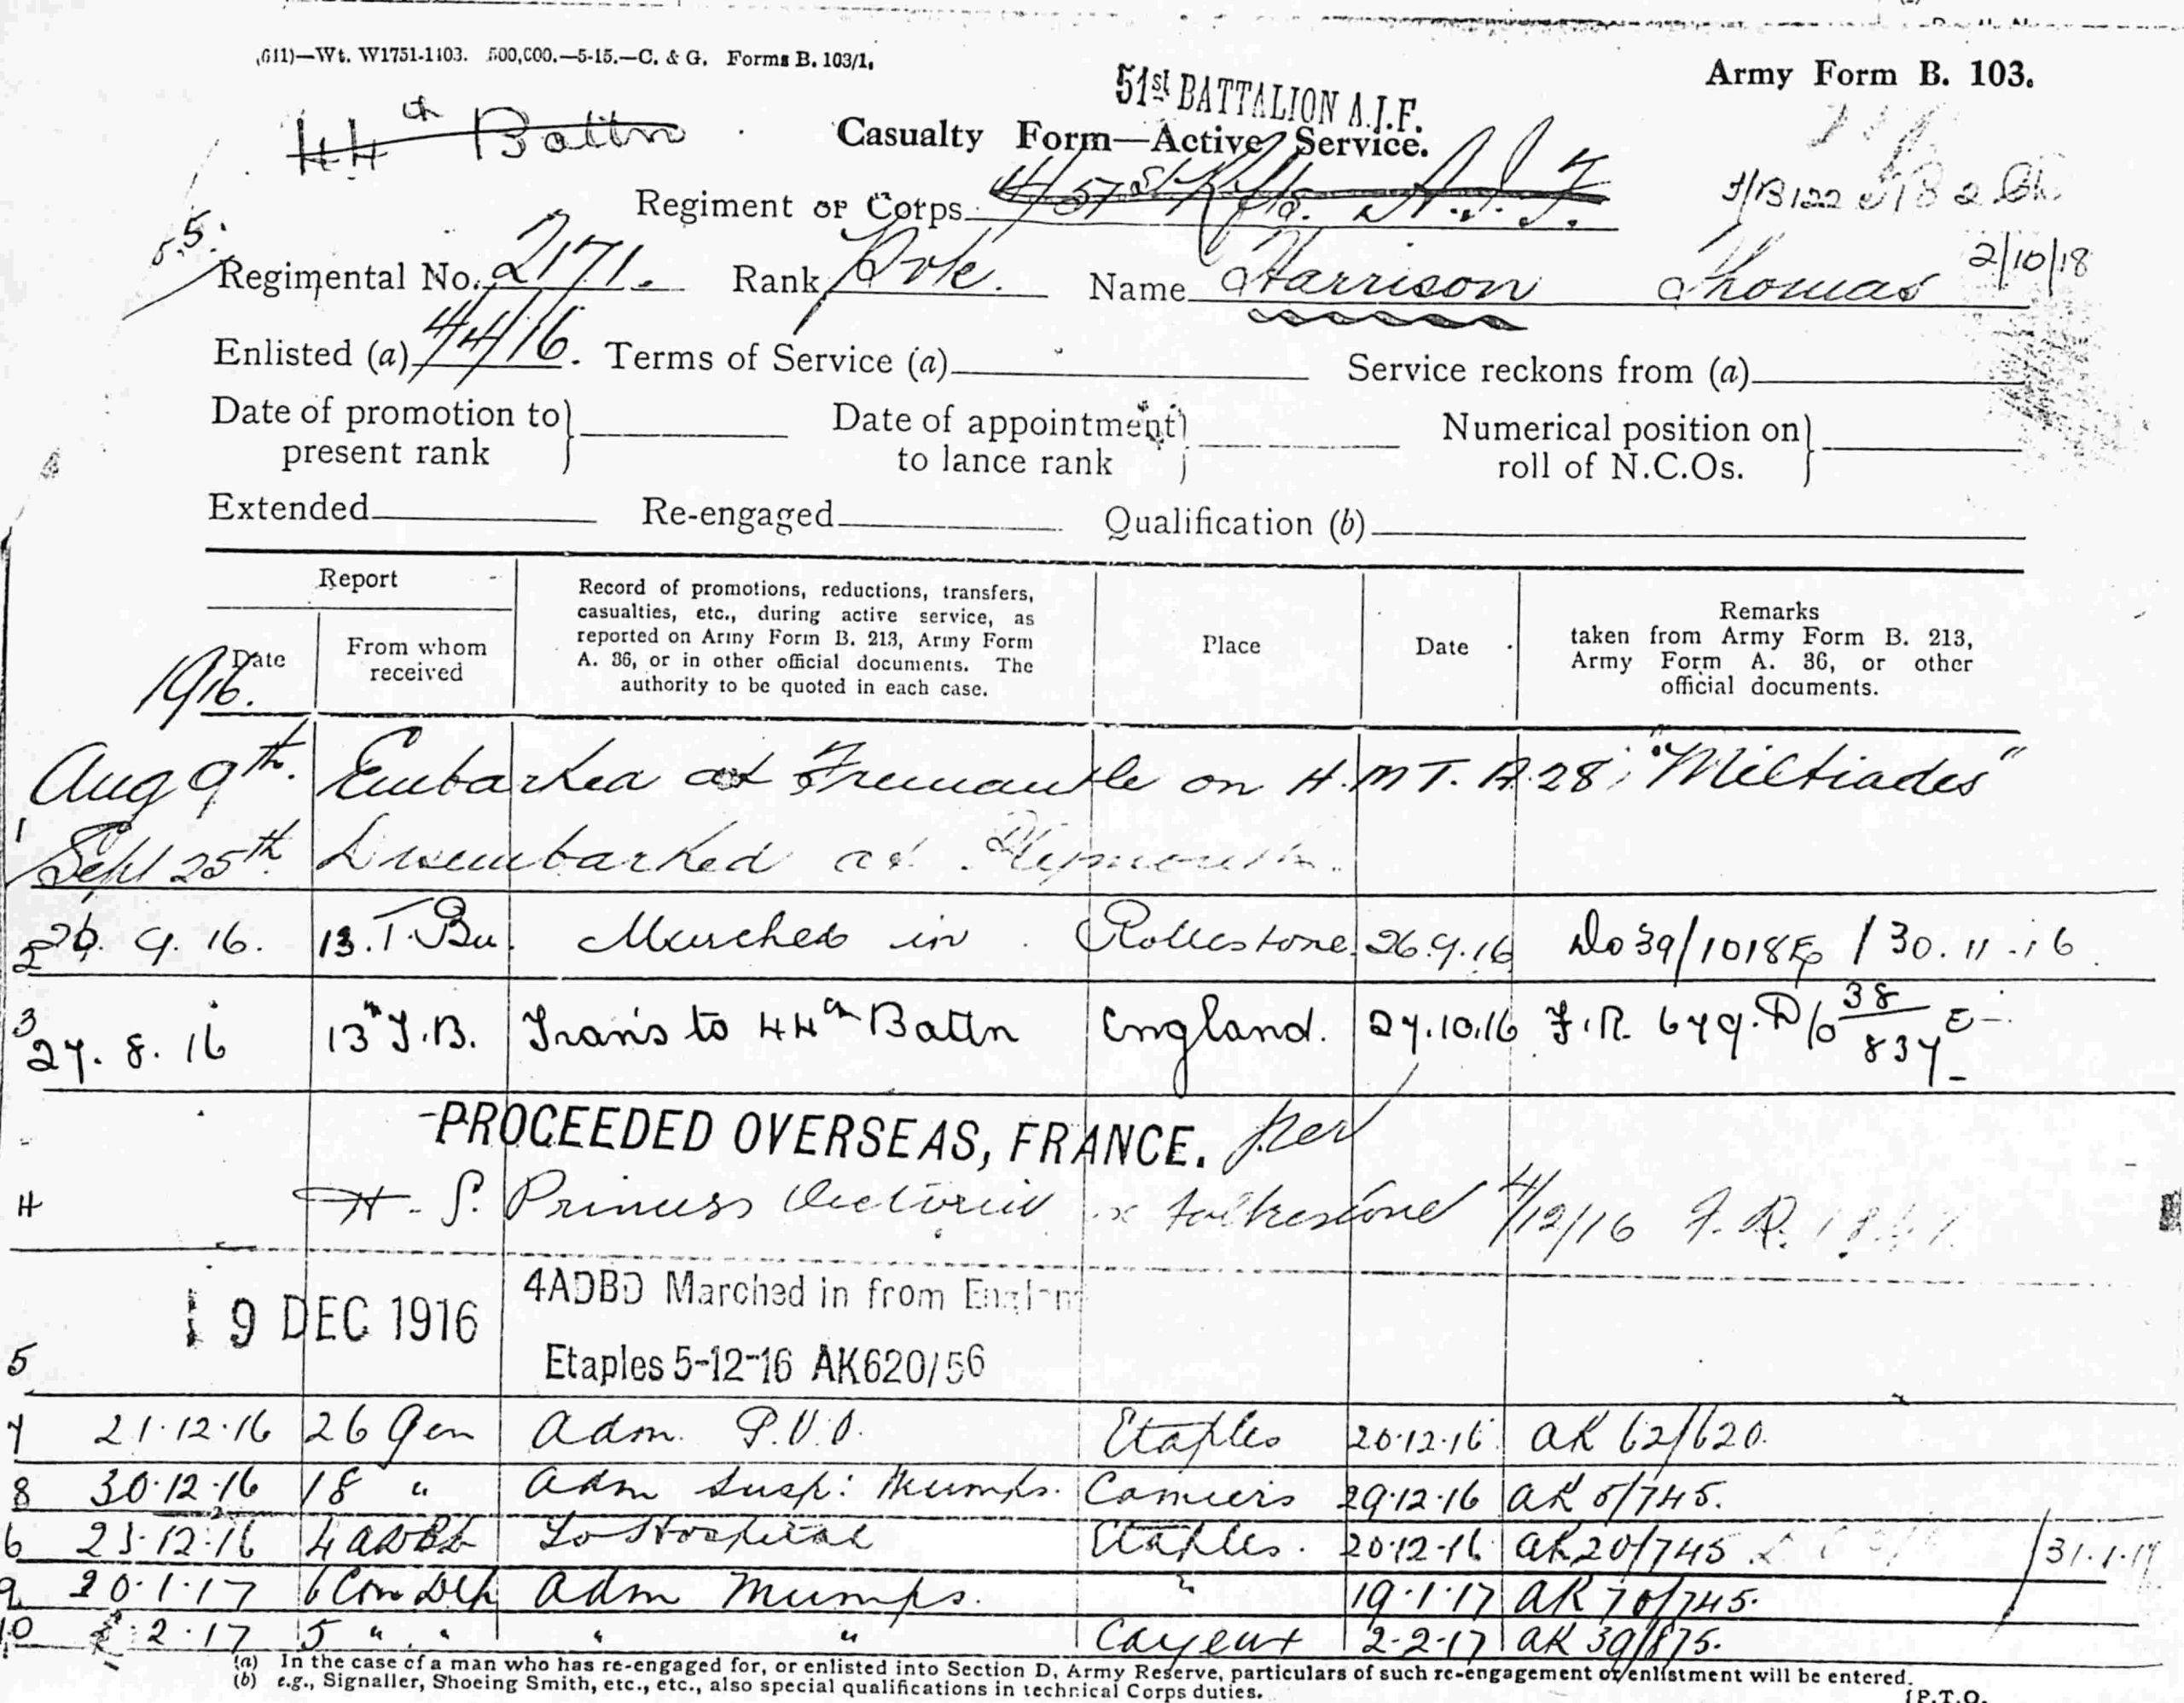 (611)—Wt. W1751-1103. 500,000.—5-15.—C. & G. Forms B. 103/1.
Army Form B. 103.
51st BATTALION A.I.F.
44th Battn
Casualty Form—Active Service.
Regiment or Corps 4/51st Rfts. A.I.F.
2/10/18
Regimental No. 2171. Rank Pvte. Name Harrison Thomas
Enlisted (a) 4/4/16. Terms of Service (a) Service reckons from (a)
Date of promotion to present rank } Date of appointment to lance rank } Numerical position on roll of N.C.Os. }
Extended Re-engaged Qualification (b)
Report
Date
From whom received
Record of promotions, reductions, transfers, casualties, etc., during active service, as reported on Army Form B. 213, Army Form A. 36, or in other official documents. The authority to be quoted in each case.
Place
Date
Remarks taken from Army Form B. 213, Army Form A. 36, or other official documents.
1916.
Aug 9th. Embarked at Fremantle on H.M.T. A.28, "Miltiades"
1 Sept 25th Disembarked at Plymouth.
2 26. 9. 16. 13.T.Bn. Marched in Rollestone. 26.9.16 Do 39/1018 / 30.11.16
3 27. 8. 16 13th T.B. Trans to 44th Battn England. 27.10.16 F.R. 679. D/o 38/837 E
PROCEEDED OVERSEAS, FRANCE. per
4 H.S. Princess Victoria ex Folkestone 4/12/16 F.R.
19 DEC 1916 4ADBD Marched in from England
5 Etaples 5-12-16 AK620/56
7 21.12.16 26 Gen Adm. P.U.O. Etaples 20.12.16 AK 62/620.
8 30.12.16 18 " Adm Susp: Mumps. Camiers 29.12.16 AK 5/745.
6 23.12.16 4 ADBD To Hospital Etaples. 20.12.16 AK20/745 31.1.17
9 20.1.17 6 Con Dep Adm Mumps. " 19.1.17 AK 70/745.
10 2.2.17 5 " " " " Cayeux 2-2-17 AK 39/875.
(a) In the case of a man who has re-engaged for, or enlisted into Section D, Army Reserve, particulars of such re-engagement or enlistment will be entered.
(b) e.g., Signaller, Shoeing Smith, etc., etc., also special qualifications in technical Corps duties.
[P.T.O.